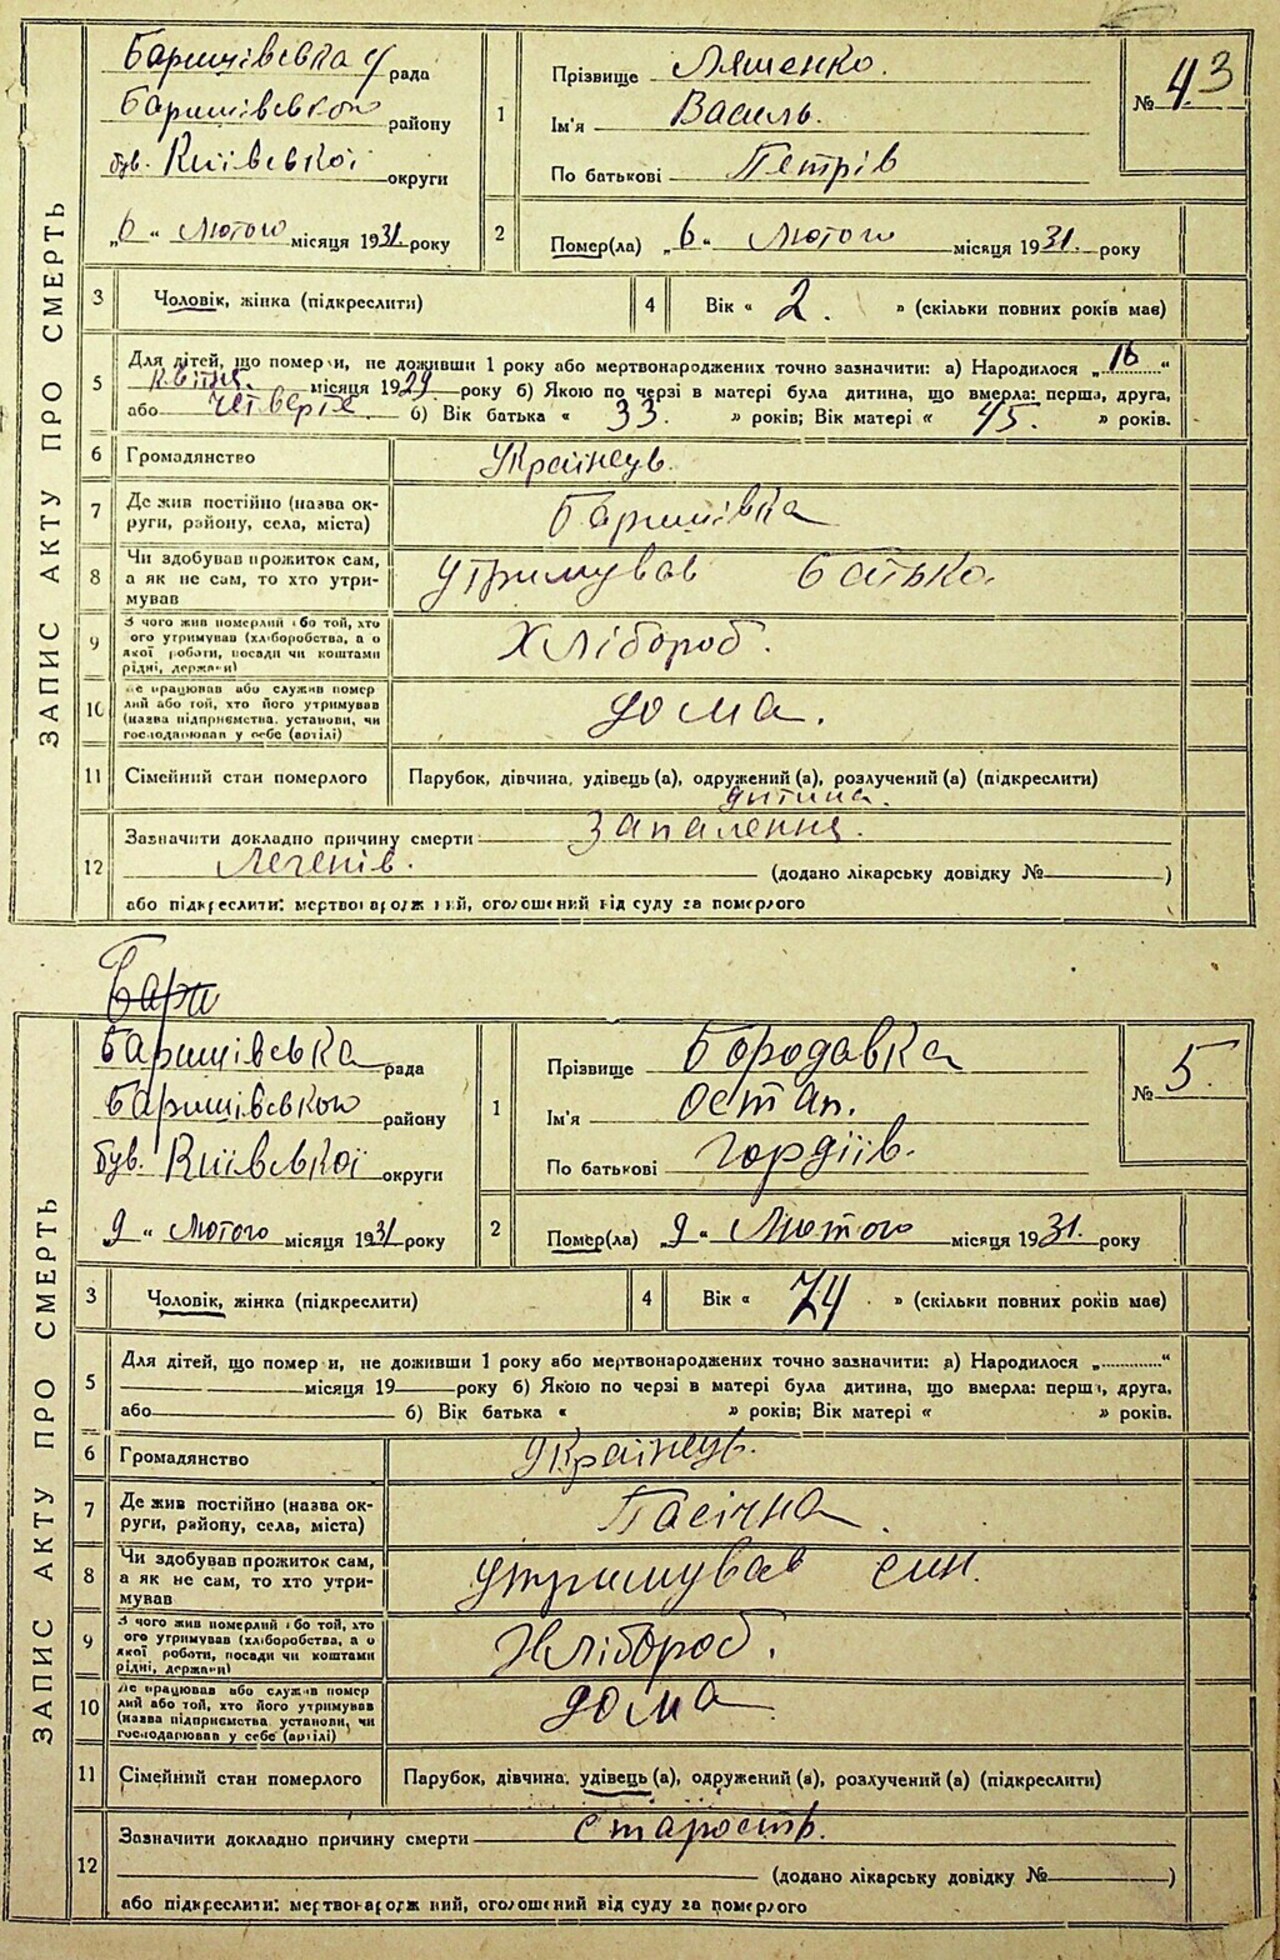 ЗАПИС АКТУ ПРО СМЕРТЬ
Баришівська рада
Баришівського району
був. Київської округи
„6“ лютого місяця 1931. року
1
Прізвище Ляшенко.
Ім'я Василь.
По батькові Петрів
№ 43
2
Помер(ла) „6“ лютого місяця 1931. року
3
Чоловік, жінка (підкреслити)
4
Вік « 2. » (скільки повних років має)
5
Для дітей, що померли, не доживши 1 року або мертвонароджених точно зазначити: а) Народилося „16“
місяця 1929 року б) Якою по черзі в матері була дитина, що вмерла: перша, друга,
або четверте. б) Вік батька « 33. » років; Вік матері « 45. » років.
6
Громадянство
Українець.
7
Де жив постійно (назва ок-
руги, району, села, міста)
Баришівка
8
Чи здобував прожиток сам,
а як не сам, то хто утри-
мував
утримував батько.
9
З чого жив померлий або той, хто
ого утримував (хліборобства, а о
якої роботи, посади чи коштами
рідні, держави)
Хлібороб.
10
де працював або служив помер
лий або той, хто його утримував
(назва підприємства, установи, чи
господарював у себе (артілі)
дома.
11
Сімейний стан померлого
Парубок, дівчина, удівець (а), одружений (а), розлучений (а) (підкреслити)
дитина.
12
Зазначити докладно причину смерти Запалення.
Легенів. (додано лікарську довідку № )
або підкреслити: мертвонароджений, оголошений від суду за померлого
Бари
ЗАПИС АКТУ ПРО СМЕРТЬ
Баришівська рада
Баришівського району
був. Київської округи
9“ лютого місяця 1931 року
1
Прізвище Бородавка
Ім'я Остап.
По батькові Гордіїв.
№ 5.
2
Помер(ла) „9“ Лютого місяця 1931. року
3
Чоловік, жінка (підкреслити)
4
Вік « 74. » (скільки повних років має)
5
Для дітей, що померли, не доживши 1 року або мертвонароджених точно зазначити: а) Народилося „ “
місяця 19 року б) Якою по черзі в матері була дитина, що вмерла: перша, друга,
або б) Вік батька « » років; Вік матері « » років.
6
Громадянство
Українець.
7
Де жив постійно (назва ок-
руги, району, села, міста)
Пасічна.
8
Чи здобував прожиток сам,
а як не сам, то хто утри-
мував
утримував син.
9
З чого жив померлий або той, хто
ого утримував (хліборобства, а о
якої роботи, посади чи коштами
рідні, держави)
Хлібороб.
10
де працював або служив помер
лий або той, хто його утримував
(назва підприємства установи, чи
господарював у себе (артілі)
дома
11
Сімейний стан померлого
Парубок, дівчина, удівець (а), одружений (а), розлучений (а) (підкреслити)
12
Зазначити докладно причину смерти старость.
(додано лікарську довідку № )
або підкреслити: мертвонароджений, оголошений від суду за померлого